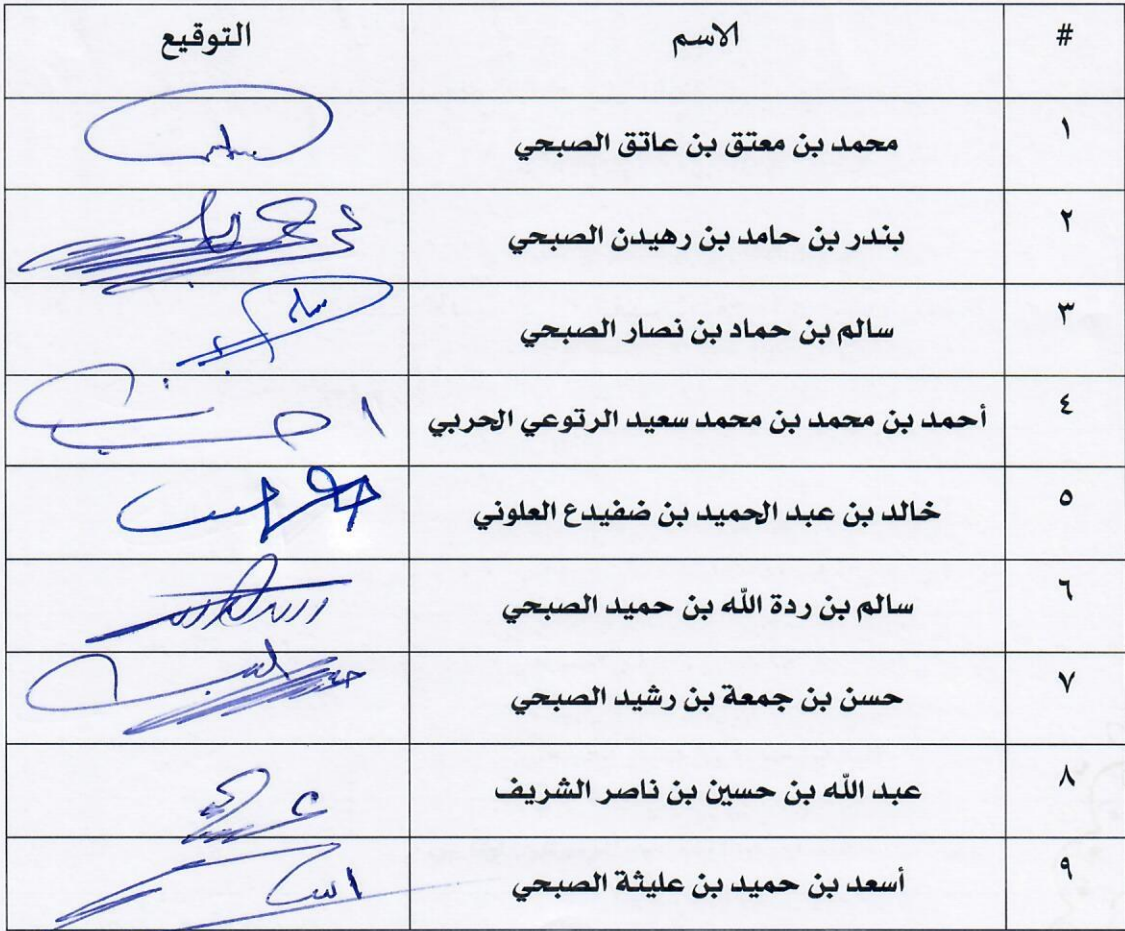 # الاسم التوقيع
١ محمد بن معتق بن عاتق الصبحي
٢ بندر بن حامد بن رهيدن الصبحي
٣ سالم بن حماد بن نصار الصبحي
٤ أحمد بن محمد بن محمد سعيد الرتوعي الحربي
٥ خالد بن عبد الحميد بن ضفيدع العلوني
٦ سالم بن ردة الله بن حميد الصبحي
٧ حسن بن جمعة بن رشيد الصبحي
٨ عبد الله بن حسين بن ناصر الشريف
٩ أسعد بن حميد بن عليثة الصبحي